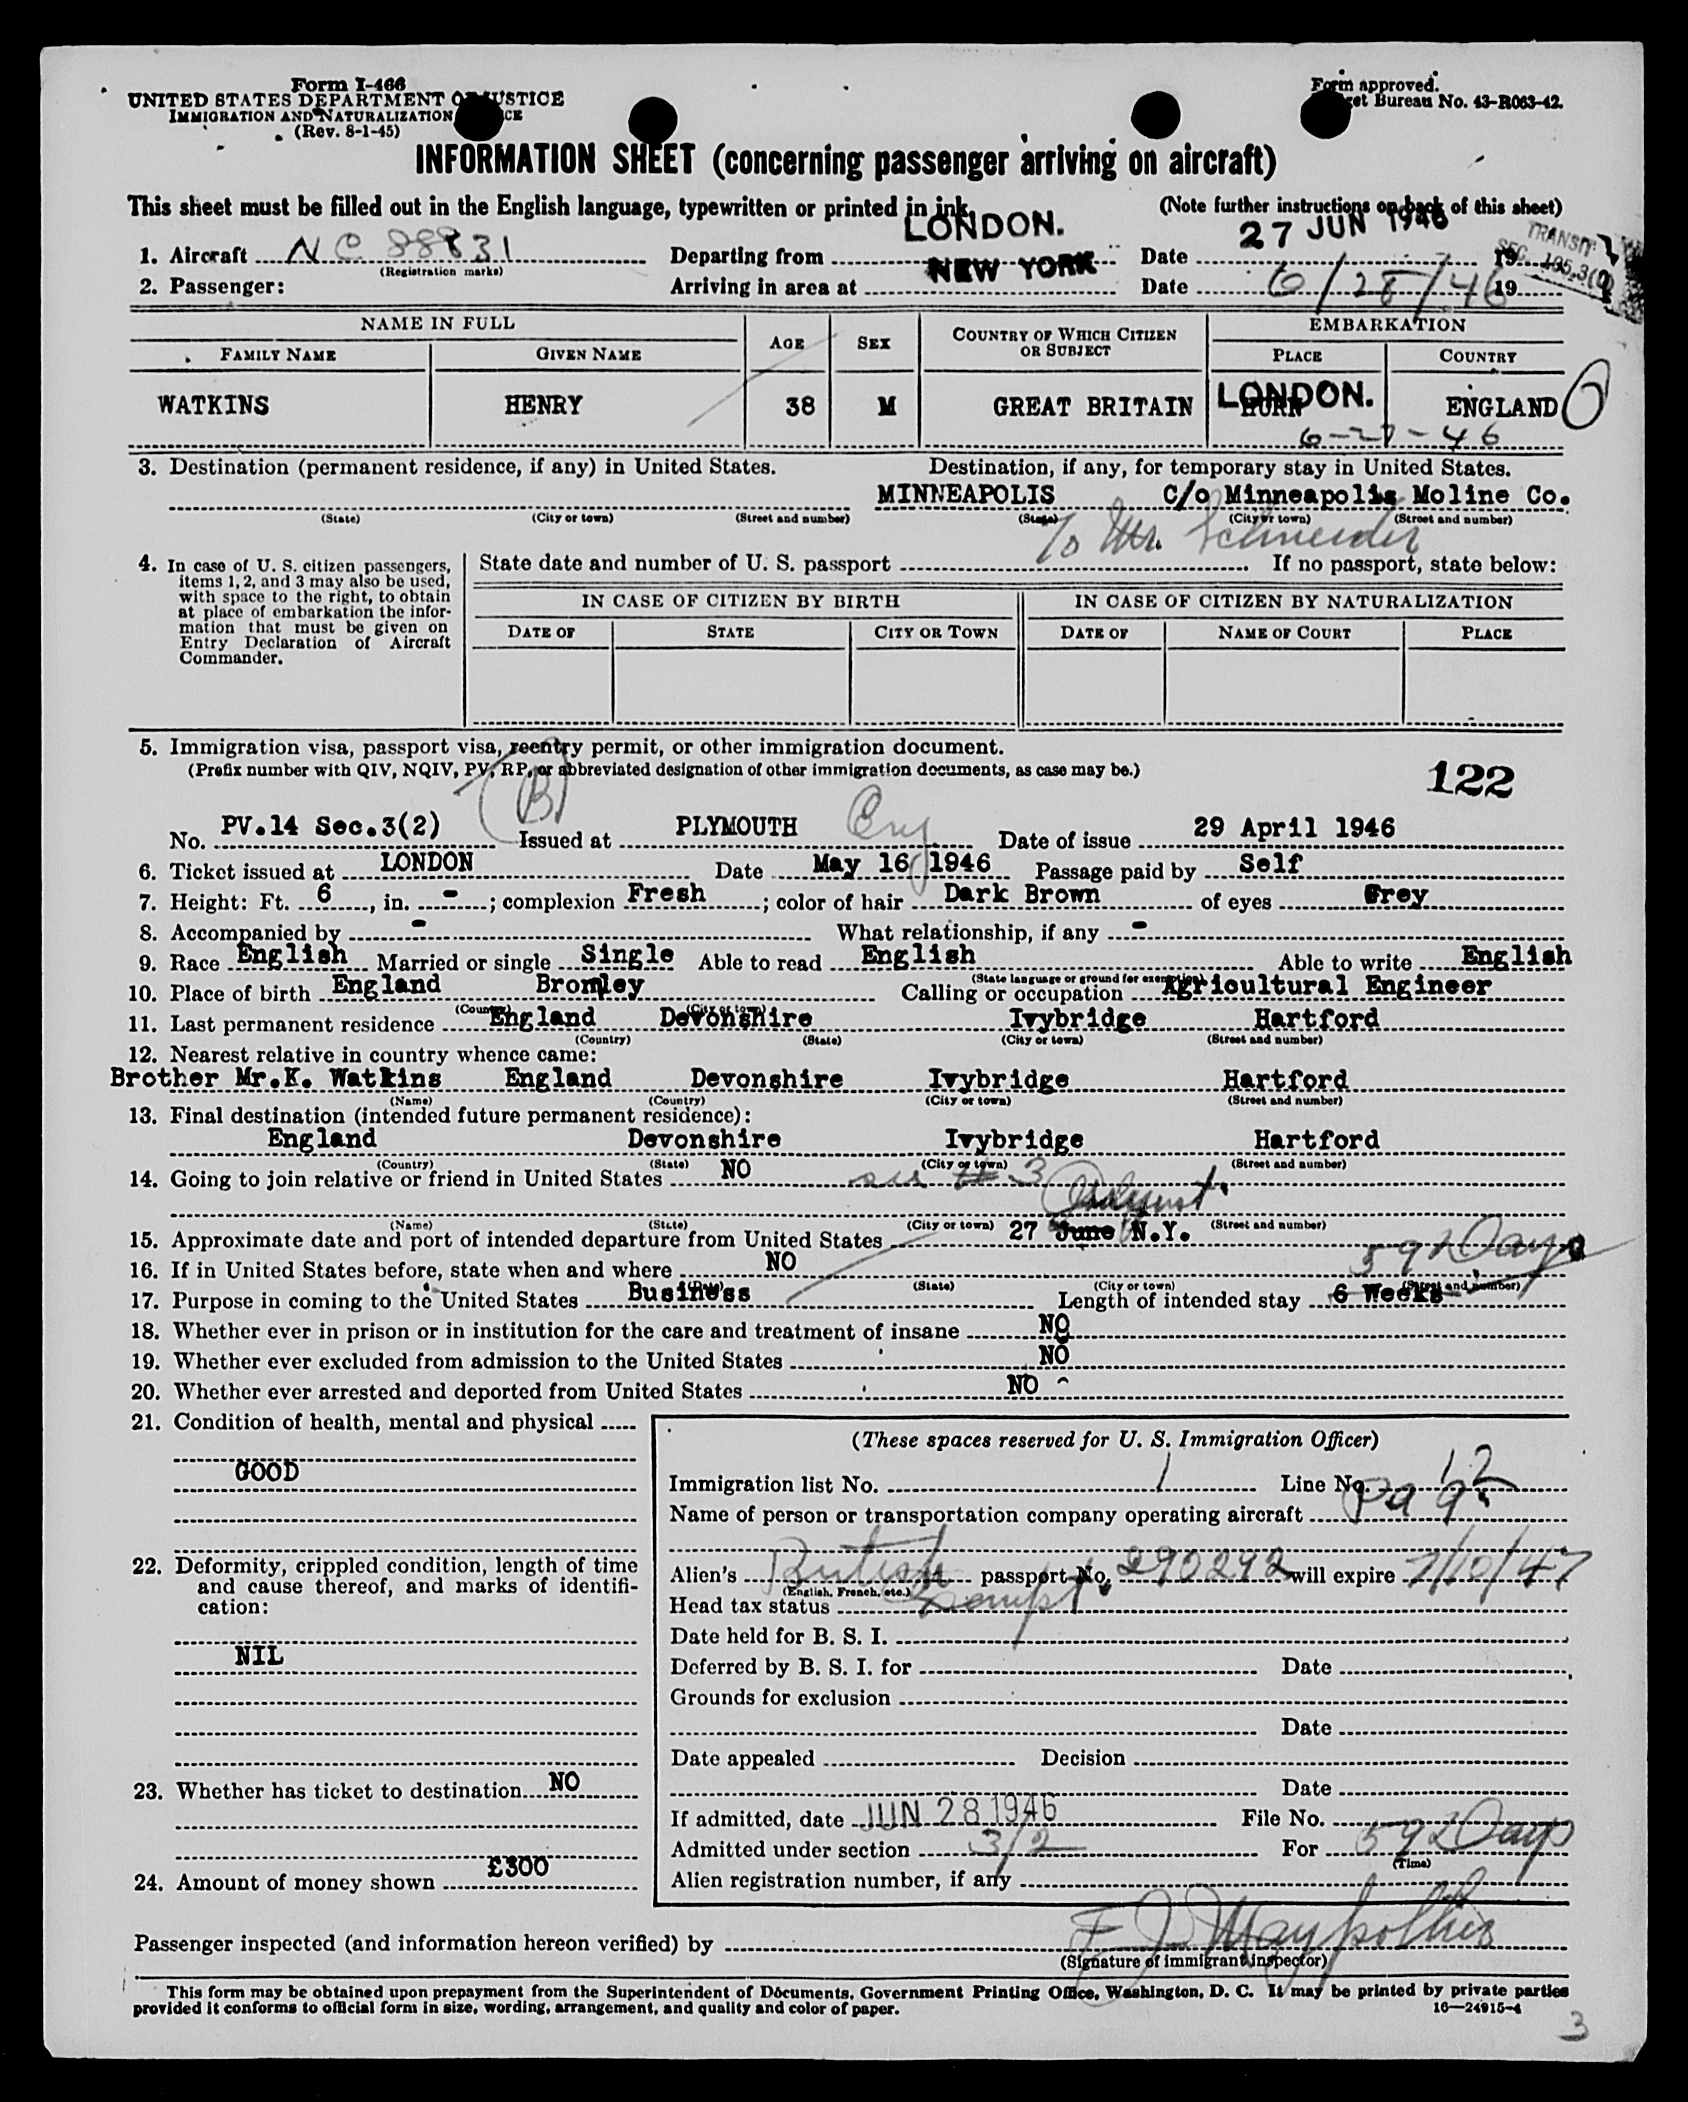 Form I-466
UNITED STATES DEPARTMENT OF JUSTICE
IMMIGRATION AND NATURALIZATION
(Rev. 8-1-45)
Form approved.
Bureau No. 43-R063-42.
INFORMATION SHEET (concerning passenger arriving on aircraft)
This sheet must be filled out in the English language, typewritten or printed in ink. (Note further instructions on back of this sheet)
1. Aircraft NC 88831 Departing from LONDON. Date 27 JUN 1946 19
(Registration marks)
TRANSIT
SEC.
2. Passenger: Arriving in area at NEW YORK Date 6/28/46 19
NAME IN FULL AGE SEX COUNTRY OF WHICH CITIZEN OR SUBJECT EMBARKATION
FAMILY NAME GIVEN NAME PLACE COUNTRY
WATKINS HENRY 38 M GREAT BRITAIN LONDON. HURN ENGLAND
6-27-46
3. Destination (permanent residence, if any) in United States. Destination, if any, for temporary stay in United States.
MINNEAPOLIS C/o Minneapolis Moline Co.
(State) (City or town) (Street and number) (State) (City or town) (Street and number)
To Mr. Schneider
4. In case of U. S. citizen passengers, items 1, 2, and 3 may also be used, with space to the right, to obtain at place of embarkation the information that must be given on Entry Declaration of Aircraft Commander.
State date and number of U. S. passport If no passport, state below:
IN CASE OF CITIZEN BY BIRTH IN CASE OF CITIZEN BY NATURALIZATION
DATE OF STATE CITY OR TOWN DATE OF NAME OF COURT PLACE
5. Immigration visa, passport visa, reentry permit, or other immigration document.
(Prefix number with QIV, NQIV, PV, RP, or abbreviated designation of other immigration documents, as case may be.)
(B)
122
No. PV.14 Sec.3(2) Issued at PLYMOUTH Eng Date of issue 29 April 1946
6. Ticket issued at LONDON Date May 16 1946 Passage paid by Self
7. Height: Ft. 6, in. -; complexion Fresh; color of hair Dark Brown of eyes Grey
8. Accompanied by - What relationship, if any -
9. Race English Married or single Single Able to read English Able to write English
(State language or ground for exemption)
10. Place of birth England Bromley Calling or occupation Agricultural Engineer
(Country) (City or town)
11. Last permanent residence England Devonshire Ivybridge Hartford
(Country) (State) (City or town) (Street and number)
12. Nearest relative in country whence came:
Brother Mr.K. Watkins England Devonshire Ivybridge Hartford
(Name) (Country) (City or town) (Street and number)
13. Final destination (intended future permanent residence):
England Devonshire Ivybridge Hartford
(Country) (State) (City or town) (Street and number)
14. Going to join relative or friend in United States NO see # 3
(Name) (State) (City or town) (Street and number)
15. Approximate date and port of intended departure from United States 27 June N.Y.
59 2 Days
16. If in United States before, state when and where NO
(Date) (State) (City or town) (Street and number)
17. Purpose in coming to the United States Business Length of intended stay 6 Weeks
18. Whether ever in prison or in institution for the care and treatment of insane NO
19. Whether ever excluded from admission to the United States NO
20. Whether ever arrested and deported from United States NO
21. Condition of health, mental and physical
GOOD
22. Deformity, crippled condition, length of time and cause thereof, and marks of identification:
NIL
23. Whether has ticket to destination NO
24. Amount of money shown £300
(These spaces reserved for U. S. Immigration Officer)
Immigration list No. 1 Line No. 12
Name of person or transportation company operating aircraft
Alien's British passport No. 290292 will expire 7/10/47
(English, French, etc.)
Head tax status Exempt.
Date held for B. S. I.
Deferred by B. S. I. for Date
Grounds for exclusion
Date
Date appealed Decision
Date
If admitted, date JUN 28 1946 File No.
Admitted under section 3/2 For 59 2 Days
(Time)
Alien registration number, if any
Passenger inspected (and information hereon verified) by
(Signature of immigrant inspector)
This form may be obtained upon prepayment from the Superintendent of Documents, Government Printing Office, Washington, D. C. It may be printed by private parties
provided it conforms to official form in size, wording, arrangement, and quality and color of paper. 16—24915-4
3